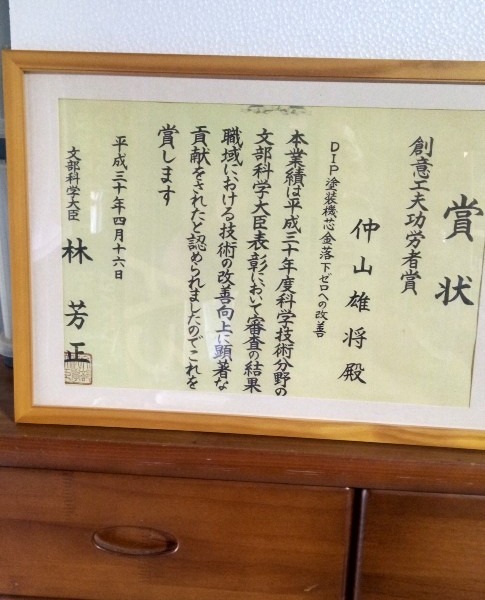 賞状
創意工夫功労者賞
仲山雄将殿
DIP塗装機芯金落下ゼロへの改善
本業績は平成三十年度科学技術分野の
文部科学大臣表彰において審査の結果
職域における技術の改善向上に顕著な
貢献をされたと認められましたのでこれを
賞します
平成三十年四月十六日
文部科学大臣 林 芳正